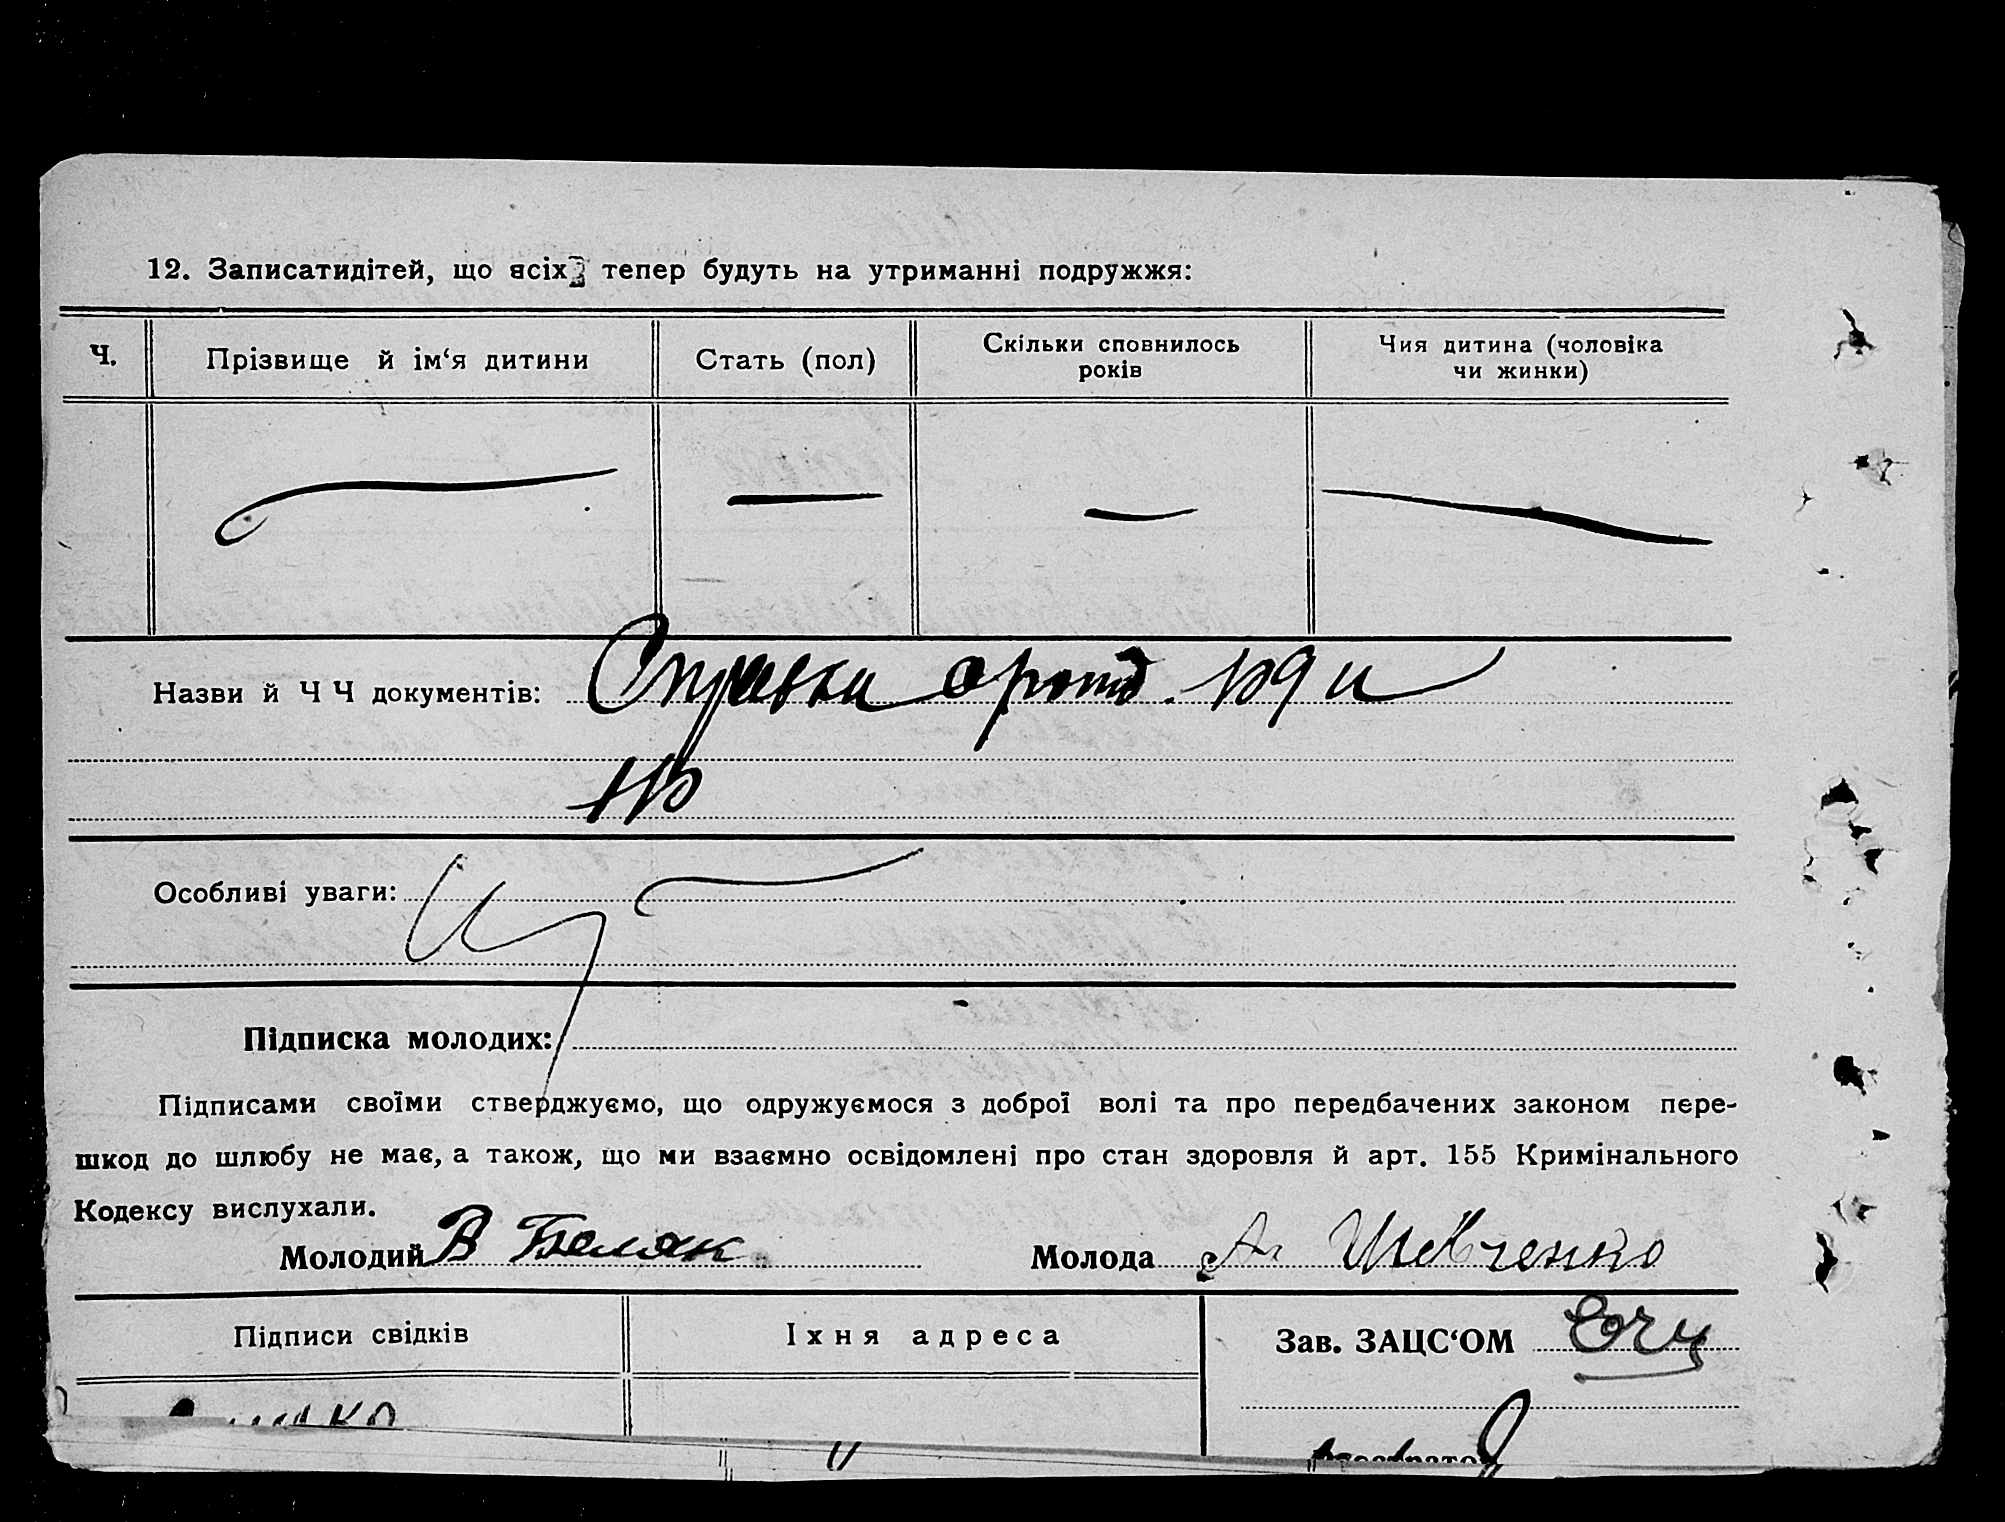 12. Записатидітей, що всіх тепер будуть на утриманні подружжя:
Ч.
Прізвище й ім‘я дитини
Стать (пол)
Скільки сповнилось
років
Чия дитина (чоловіка
чи жинки)
Назви й Ч Ч документів: Справки
Особливі уваги:
Підписка молодих:
Підписами своїми стверджуємо, що одружуємося з доброї волі та про передбачених законом пере-
шкод до шлюбу не має, а також, що ми взаємно освідомлені про стан здоровля й арт. 155 Кримінального
Кодексу вислухали.
Молодий В Беляк
Молода А. Шевченко
Підписи свідків
Їхня адреса
Зав. ЗАЦС‘ОМ